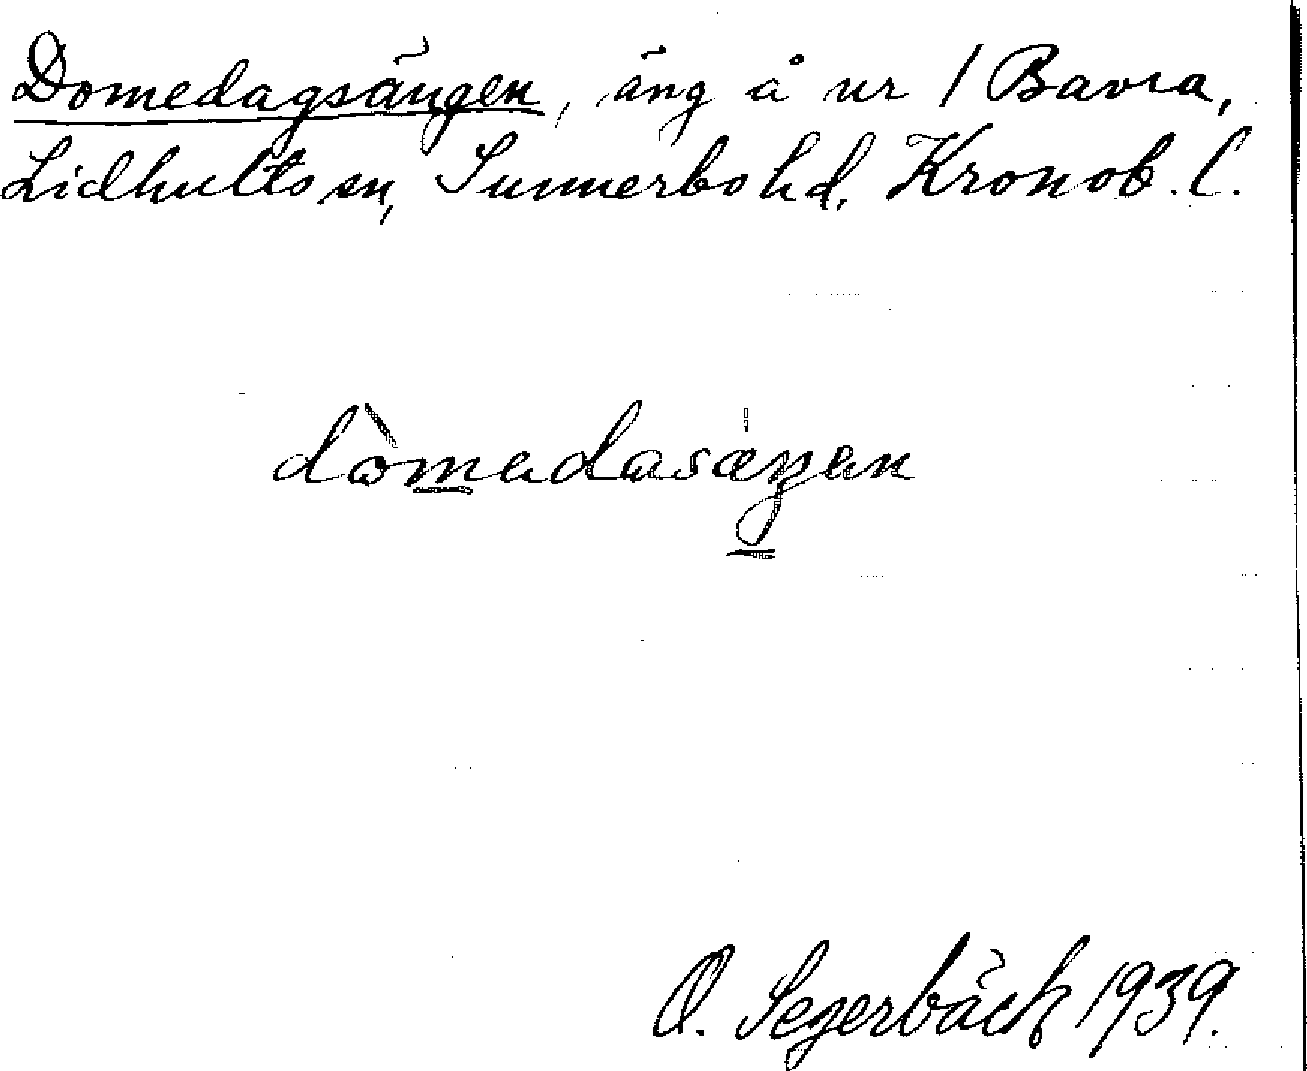 Domedagsängen, äng å nr 1 Bavra,
Lidhults sn, Sunnerbo hd, Kronob. l.
dòmedasæŋen
O. Segerbäck 1939.